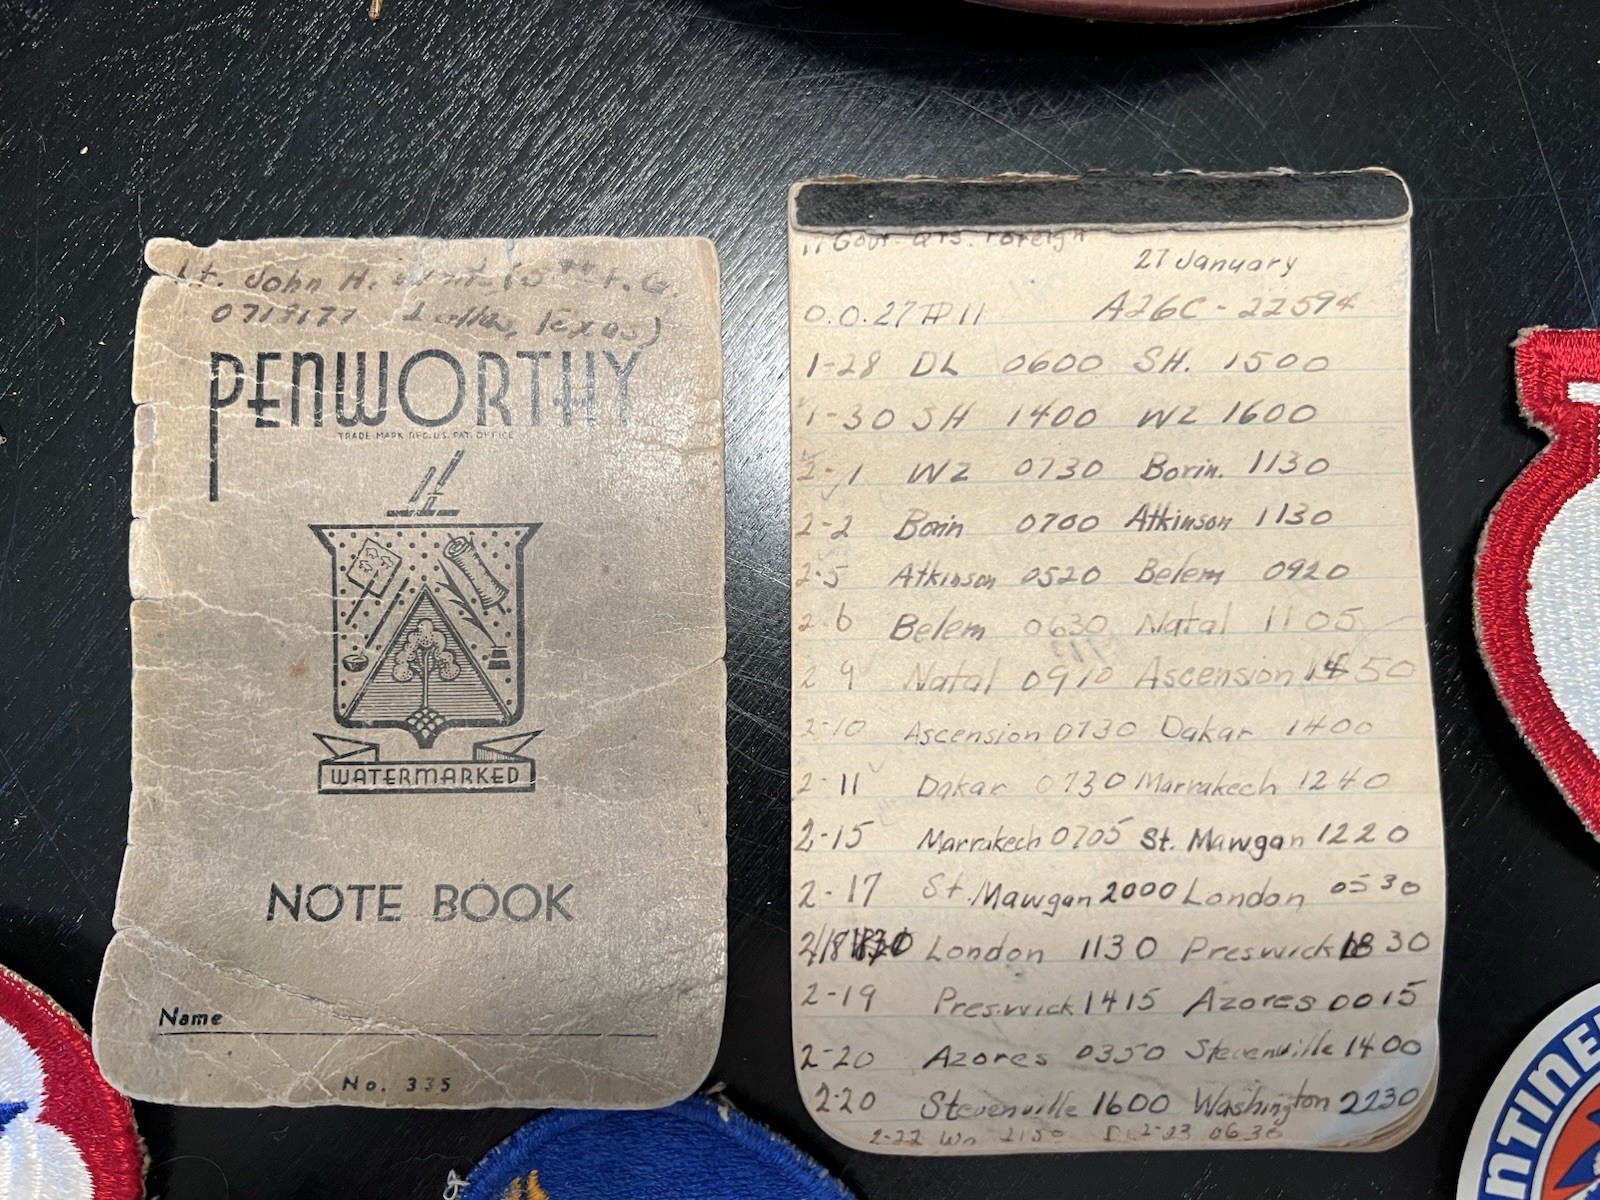 Lt. John H.
0718177 Dallas, Texas)
PENWORTHY
TRADE MARK REG. U.S. PAT. OFFICE
WATERMARKED
NOTE BOOK
Name
No. 335
Govt. Qts. Foreign
27 January
O.O. 27 # 11 A26C - 22594
1-28 DL 0600 SH. 1500
1-30 SH 1400 WZ 1600
2-1 WZ 0730 Borin. 1130
2-2 Borin 0700 Atkinson 1130
2-5 Atkinson 0520 Belem 0920
2-6 Belem 0630 Natal 1105
2 9 Natal 0910 Ascension 1450
2-10 Ascension 0730 Dakar 1400
2-11 Dakar 0730 Marrakech 1240
2-15 Marrakech 0705 St. Mawgan 1220
2-17 St. Mawgan 2000 London 0530
2/18 London 1130 Preswick 1830
2-19 Preswick 1415 Azores 0015
2-20 Azores 0350 Stevenville 1400
2-20 Stevenville 1600 Washington 2230
2-22 Wn 2150 DL 2-23 0630
NTINE